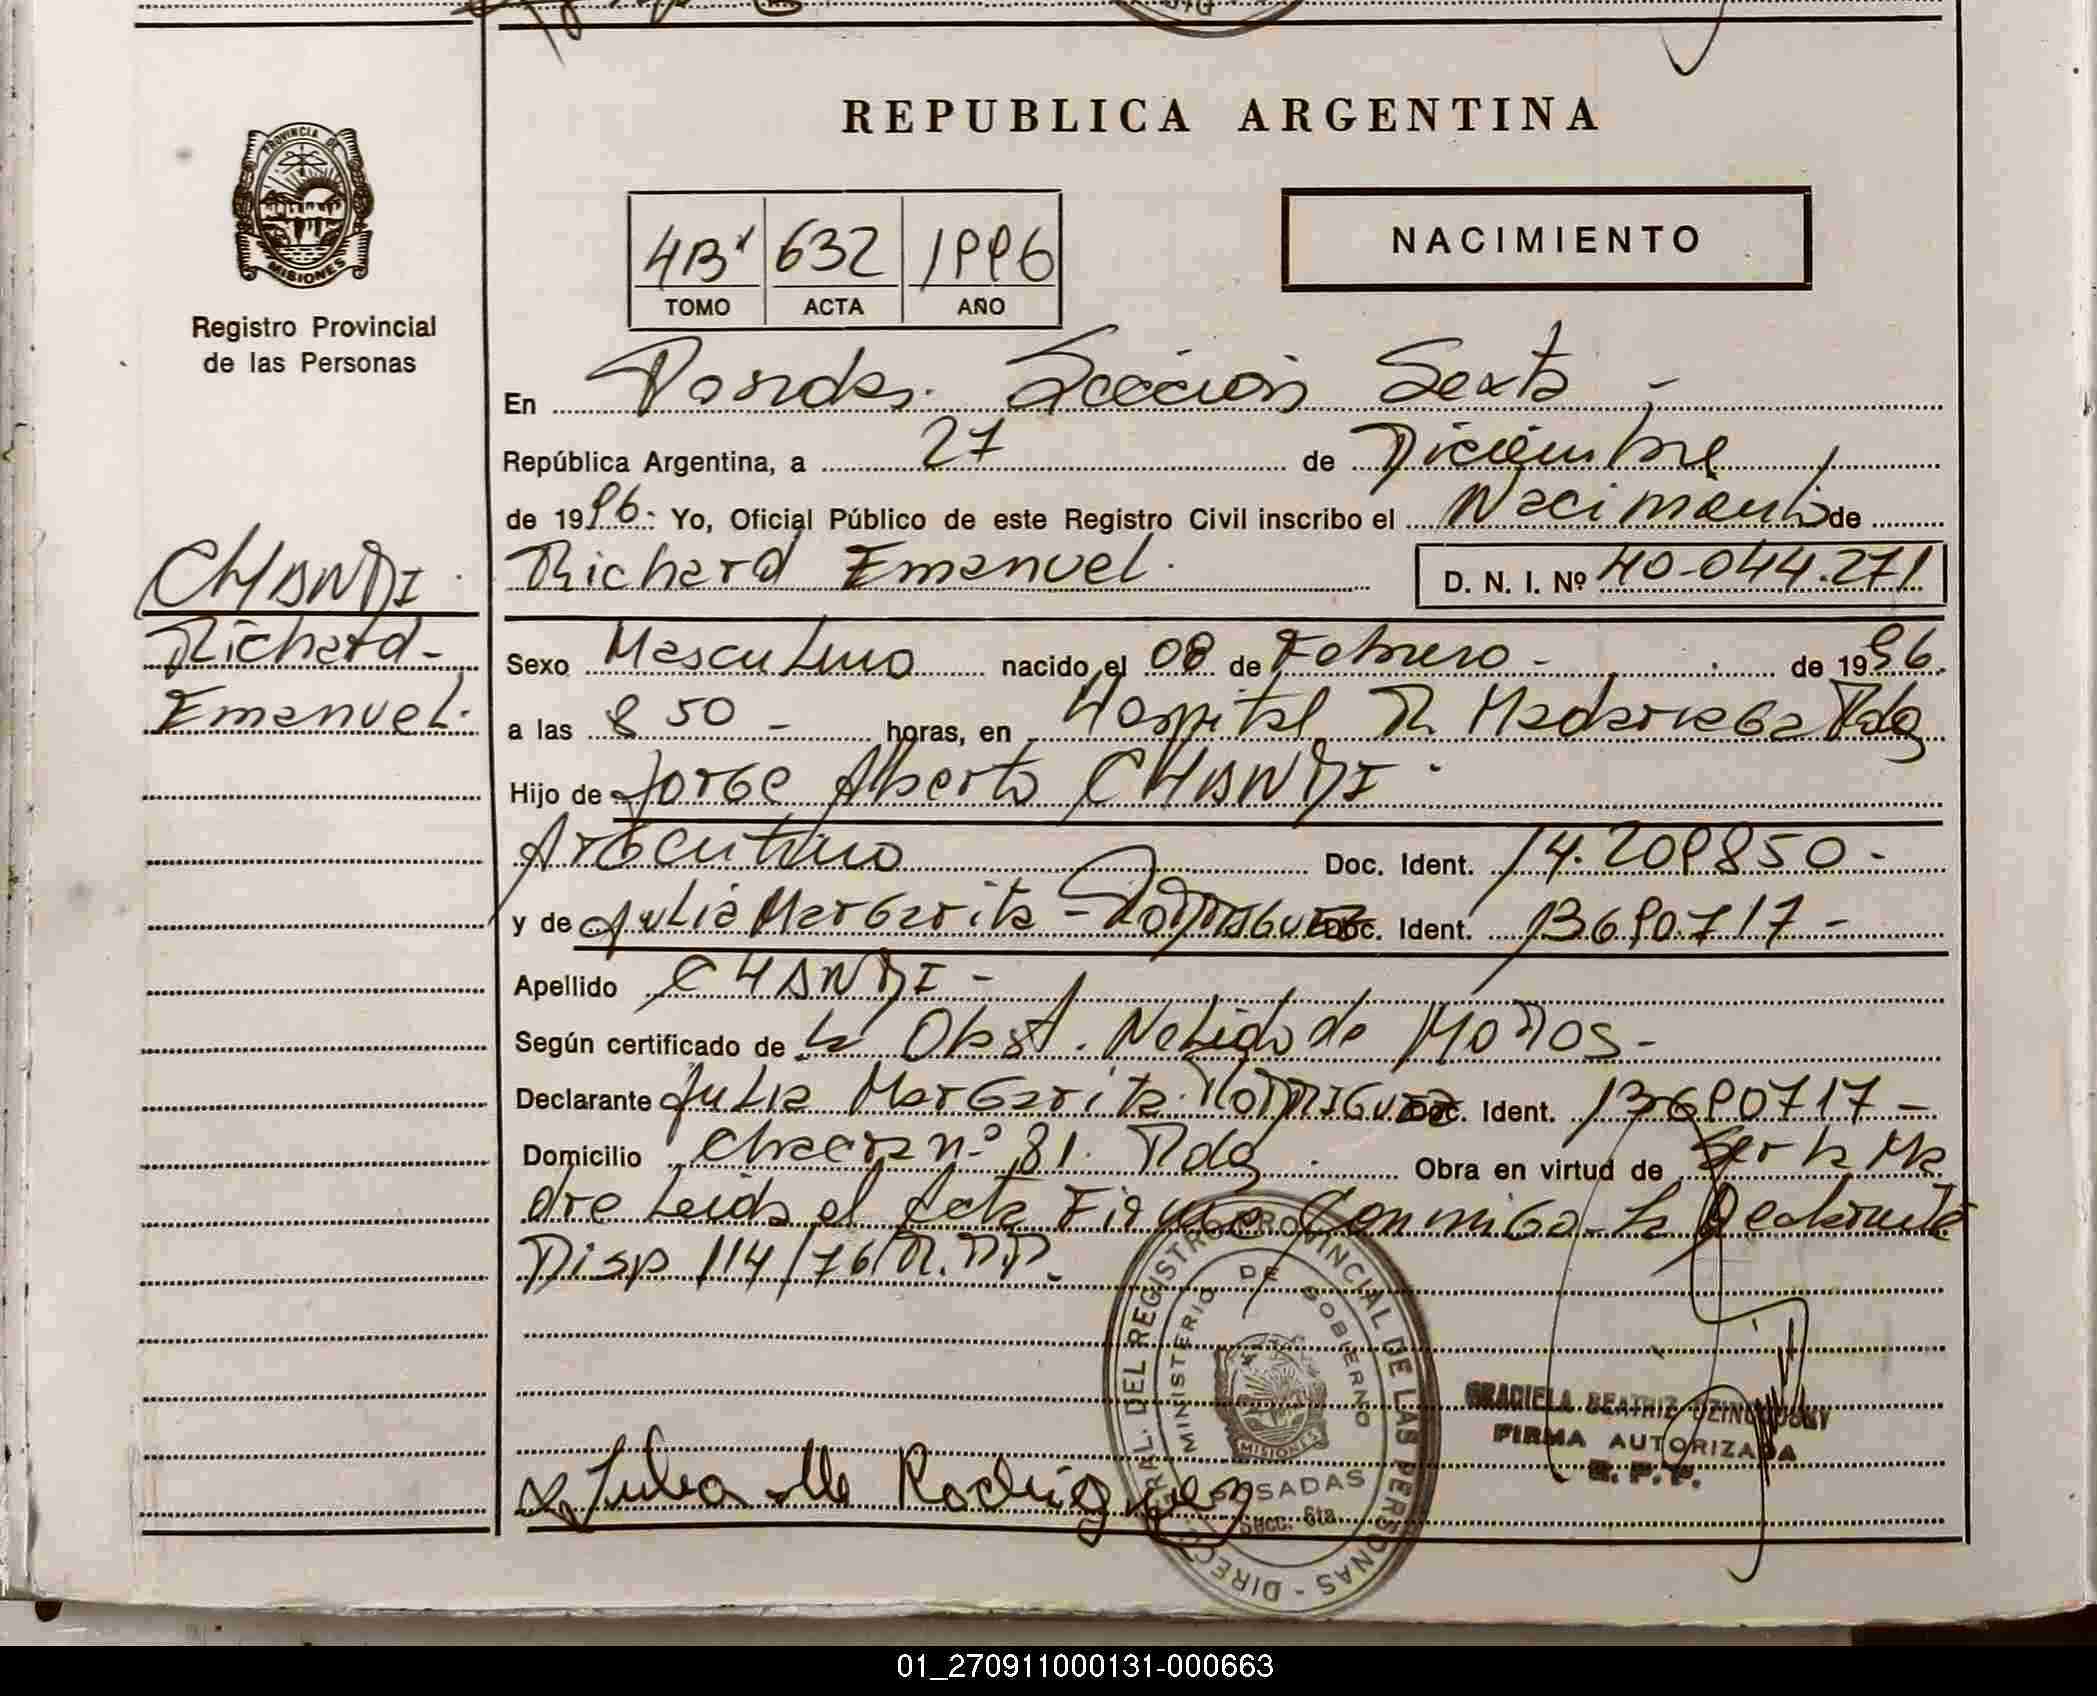 REPUBLICA ARGENTINA
PROVINCIA DE
MISIONES
Registro Provincial
de las Personas
4B' 632 1996
TOMO ACTA AÑO
NACIMIENTO
En Posadas. Sección Sexta -
República Argentina, a 27 de Diciembre
de 1996.- Yo, Oficial Público de este Registro Civil inscribo el Nacimiento de
Richard Emanuel. D. N. I. Nº 40.044.271
CHANDI.
Richard-
Emanuel.
Sexo Masculino nacido el 08 de Febrero - de 1996.
a las 8 50 - horas, en Hospital R Madariaga Pdas
Hijo de Jorge Alberto CHANDI.
Argentino Doc. Ident. 14.209850-
y de Julia Margarita - Rodriguez Doc. Ident. 13690717-
Apellido CHANDI -
Según certificado de la Obst. Nelida de
Declarante Julia Margarita Rodriguez Doc. Ident. 13690717-
Domicilio Chacra nº 81. Pdas Obra en virtud de Ser la Ma
dre Leida el Acta Firma Conmigo la Declarante
Disp 114/76/
DIREC. GRAL. DEL REGISTRO PROVINCIAL DE LAS PERSONAS -
MINISTERIO DE GOBIERNO
MISIONES
POSADAS
Secc. 6ta.
GRACIELA BEATRIZ
FIRMA AUTORIZADA
R. P. P.
x Julia M Rodriguez
01_270911000131-000663